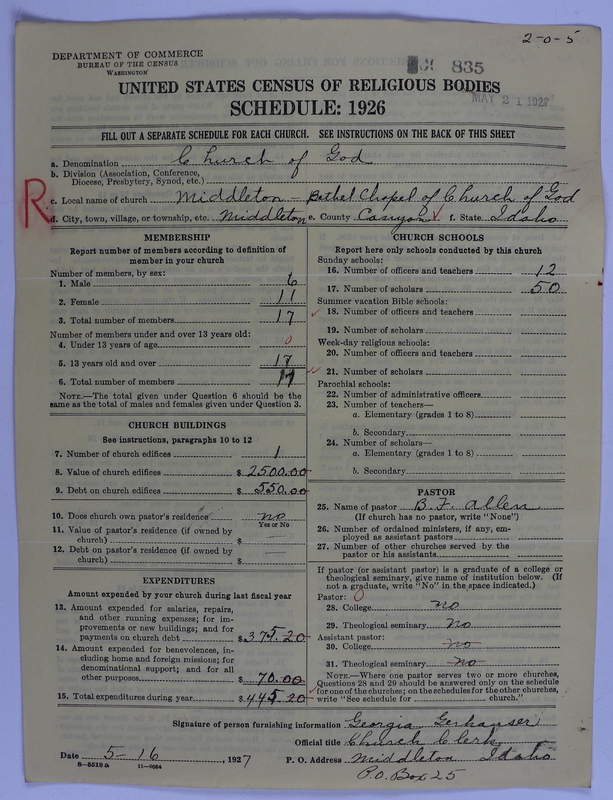 2-0-5
DEPARTMENT OF COMMERCE
BUREAU OF THE CENSUS
WASHINGTON
835
UNITED STATES CENSUS OF RELIGIOUS BODIES
MAY 21 1927
SCHEDULE: 1926
FILL OUT A SEPARATE SCHEDULE FOR EACH CHURCH. SEE INSTRUCTIONS ON THE BACK OF THIS SHEET
a. Denomination Church of God
b. Division (Association, Conference, Diocese, Presbytery, Synod, etc.)
R
c. Local name of church Middleton - Bethel Chapel of Church of God
d. City, town, village, or township, etc. Middleton e. County Canyon f. State Idaho
MEMBERSHIP
Report number of members according to definition of member in your church
Number of members, by sex:
1. Male 6
2. Female 11
3. Total number of members 17
Number of members under and over 13 years old:
4. Under 13 years of age 0
5. 13 years old and over 17
6. Total number of members 17
NOTE.—The total given under Question 6 should be the same as the total of males and females given under Question 3.
CHURCH BUILDINGS
See instructions, paragraphs 10 to 12
7. Number of church edifices 1
8. Value of church edifices $ 2500.00
9. Debt on church edifices $ 550.00
10. Does church own pastor's residence no
Yes or No
11. Value of pastor's residence (if owned by church) $
12. Debt on pastor's residence (if owned by church) $
EXPENDITURES
Amount expended by your church during last fiscal year
13. Amount expended for salaries, repairs, and other running expenses; for improvements or new buildings; and for payments on church debt $ 375.20
14. Amount expended for benevolences, including home and foreign missions; for denominational support; and for all other purposes $ 70.00
15. Total expenditures during year $ 445.20
CHURCH SCHOOLS
Report here only schools conducted by this church
Sunday schools:
16. Number of officers and teachers 12
17. Number of scholars 50
Summer vacation Bible schools:
18. Number of officers and teachers
19. Number of scholars
Week-day religious schools:
20. Number of officers and teachers
21. Number of scholars
Parochial schools:
22. Number of administrative officers
23. Number of teachers—
a. Elementary (grades 1 to 8)
b. Secondary
24. Number of scholars—
a. Elementary (grades 1 to 8)
b. Secondary
PASTOR
25. Name of pastor B. F. Allen
(If church has no pastor, write "None")
26. Number of ordained ministers, if any, employed as assistant pastors
27. Number of other churches served by the pastor or his assistants
If pastor (or assistant pastor) is a graduate of a college or theological seminary, give name of institution below. (If not a graduate, write "No" in the space indicated.)
Pastor: 0
28. College no
29. Theological seminary No
Assistant pastor:
30. College no
31. Theological seminary no
NOTE.—Where one pastor serves two or more churches, Questions 28 and 29 should be answered only on the schedule for one of the churches; on the schedules for the other churches, write "See schedule for church."
Signature of person furnishing information Georgia Gerhauser
Official title Church Clerk
Date 5-16, 1927 P. O. Address Middleton Idaho
8-5518a 11-9064
P.O. Box 25